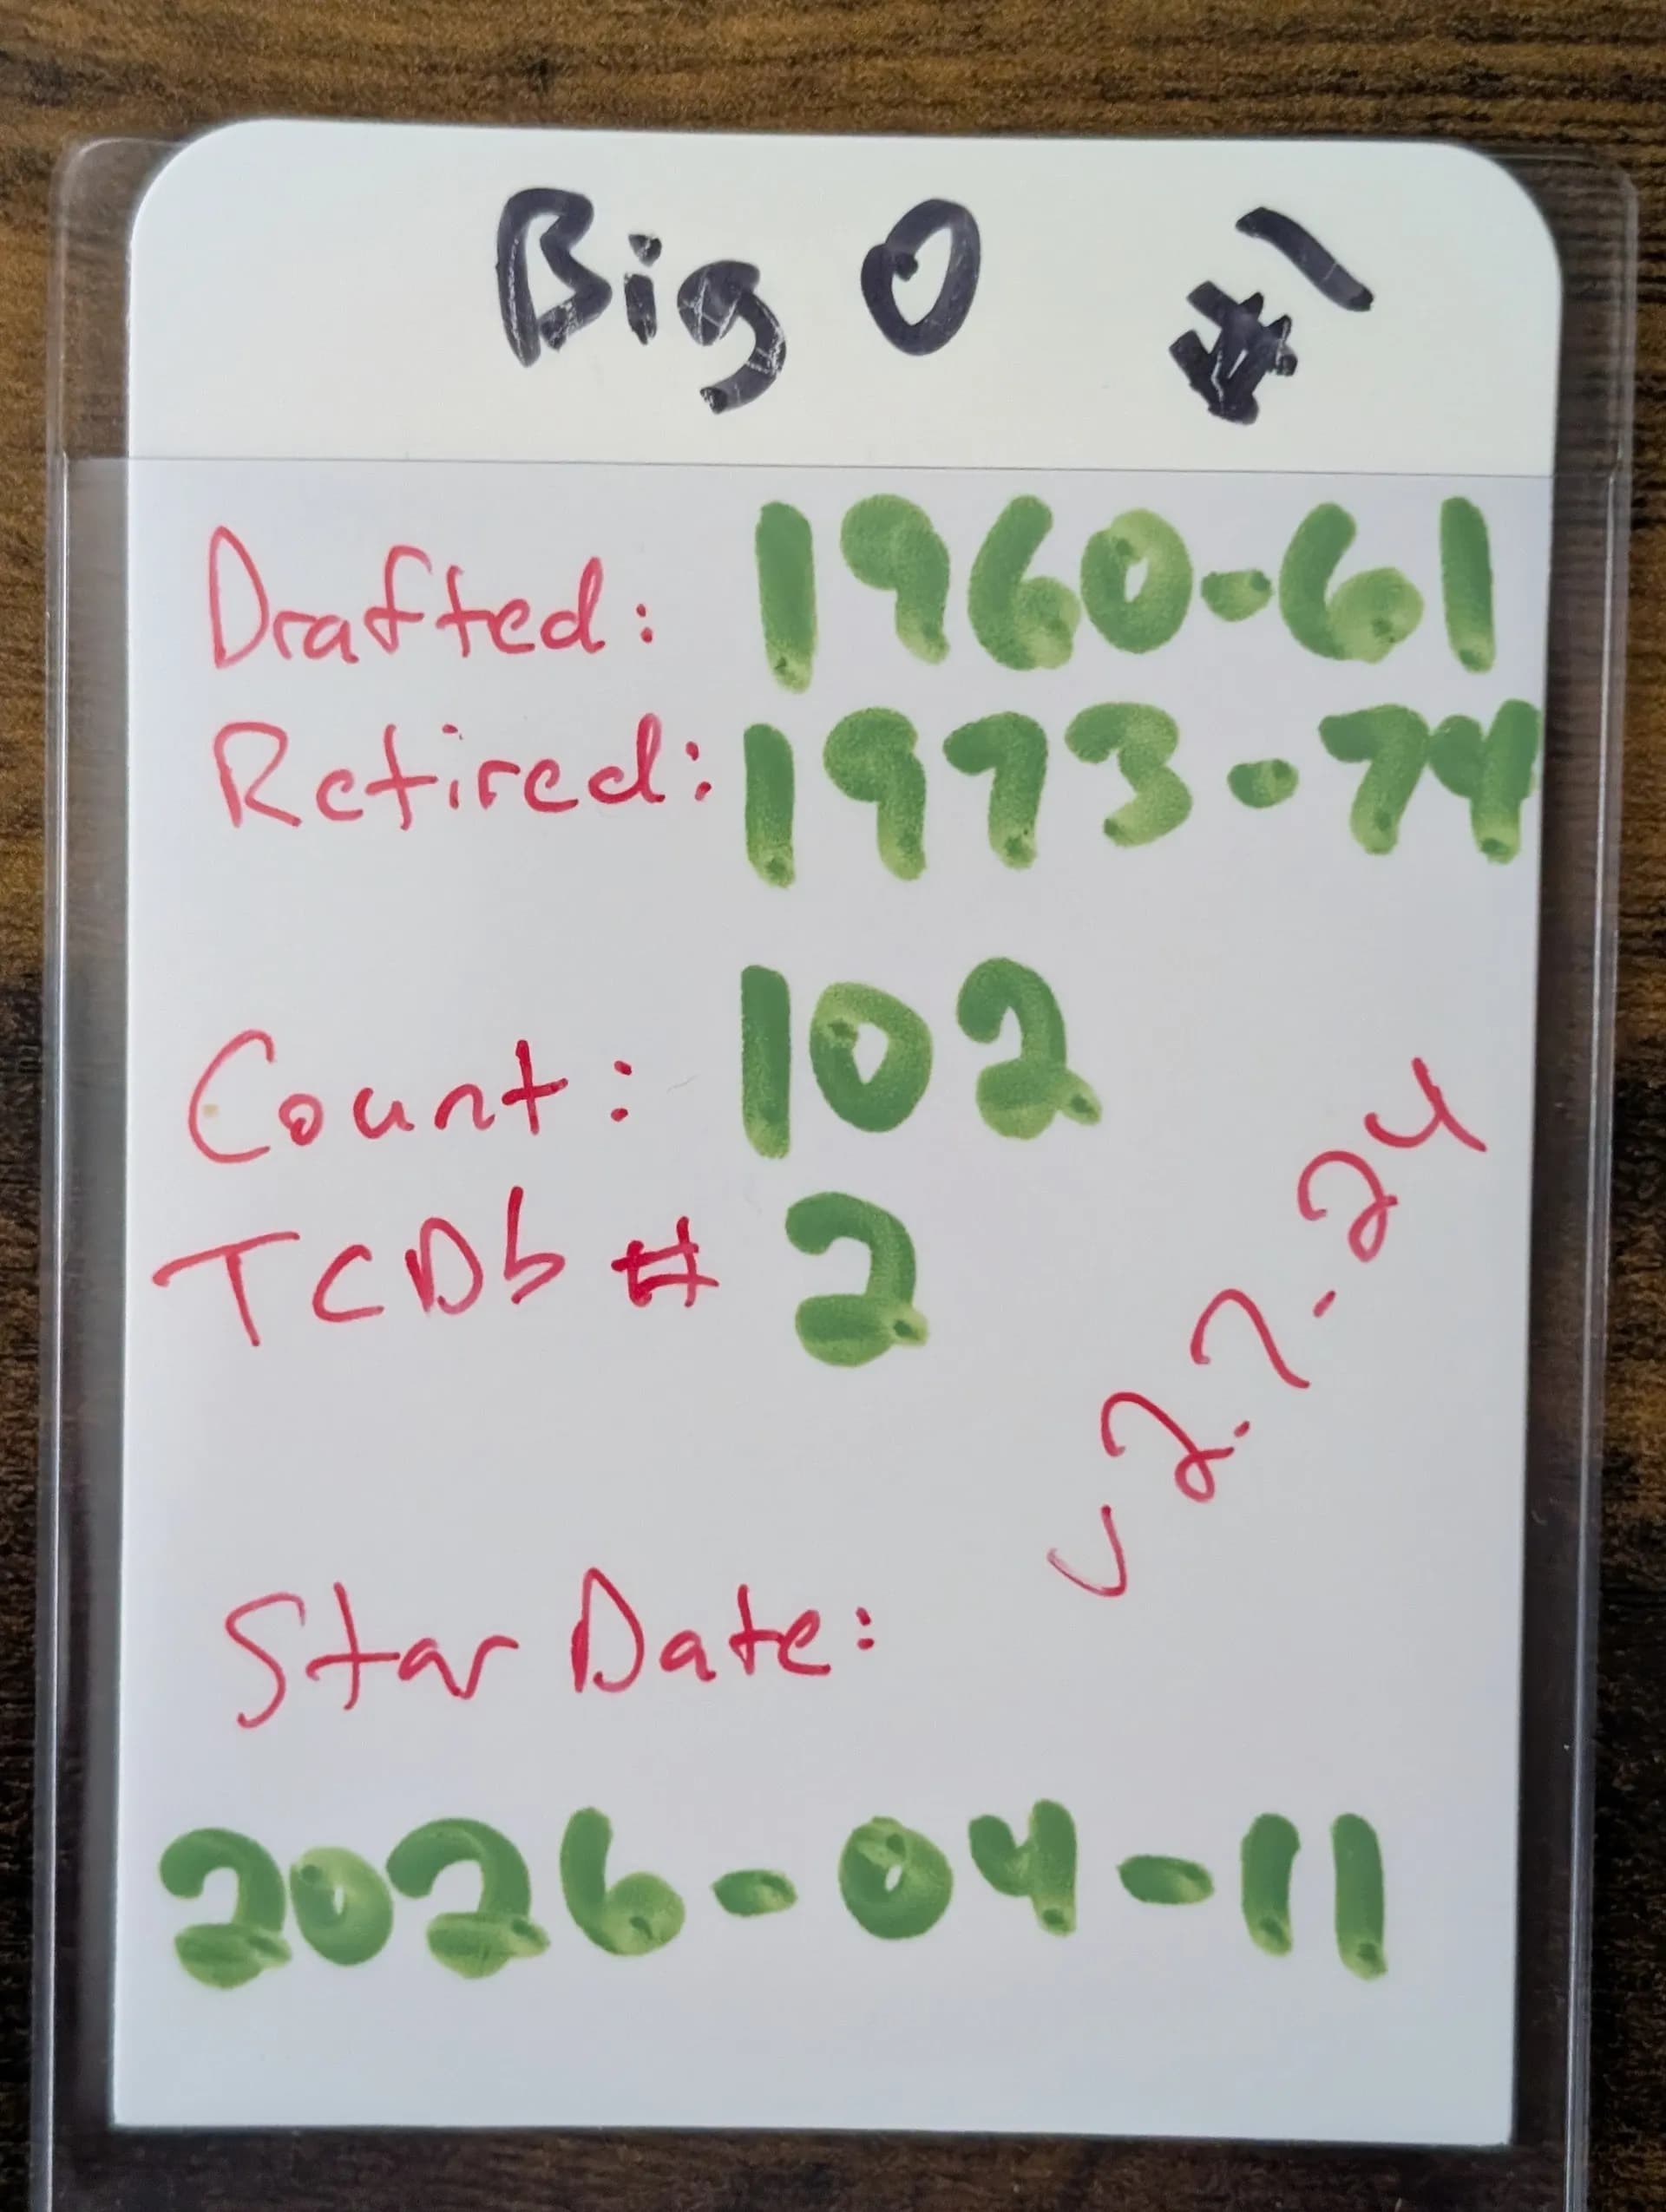 Big O #1
Drafted: 1960-61
Retired: 1973-74
Count: 102
TCDb # 2
✓ 2.7.24
Star Date:
2026-04-11